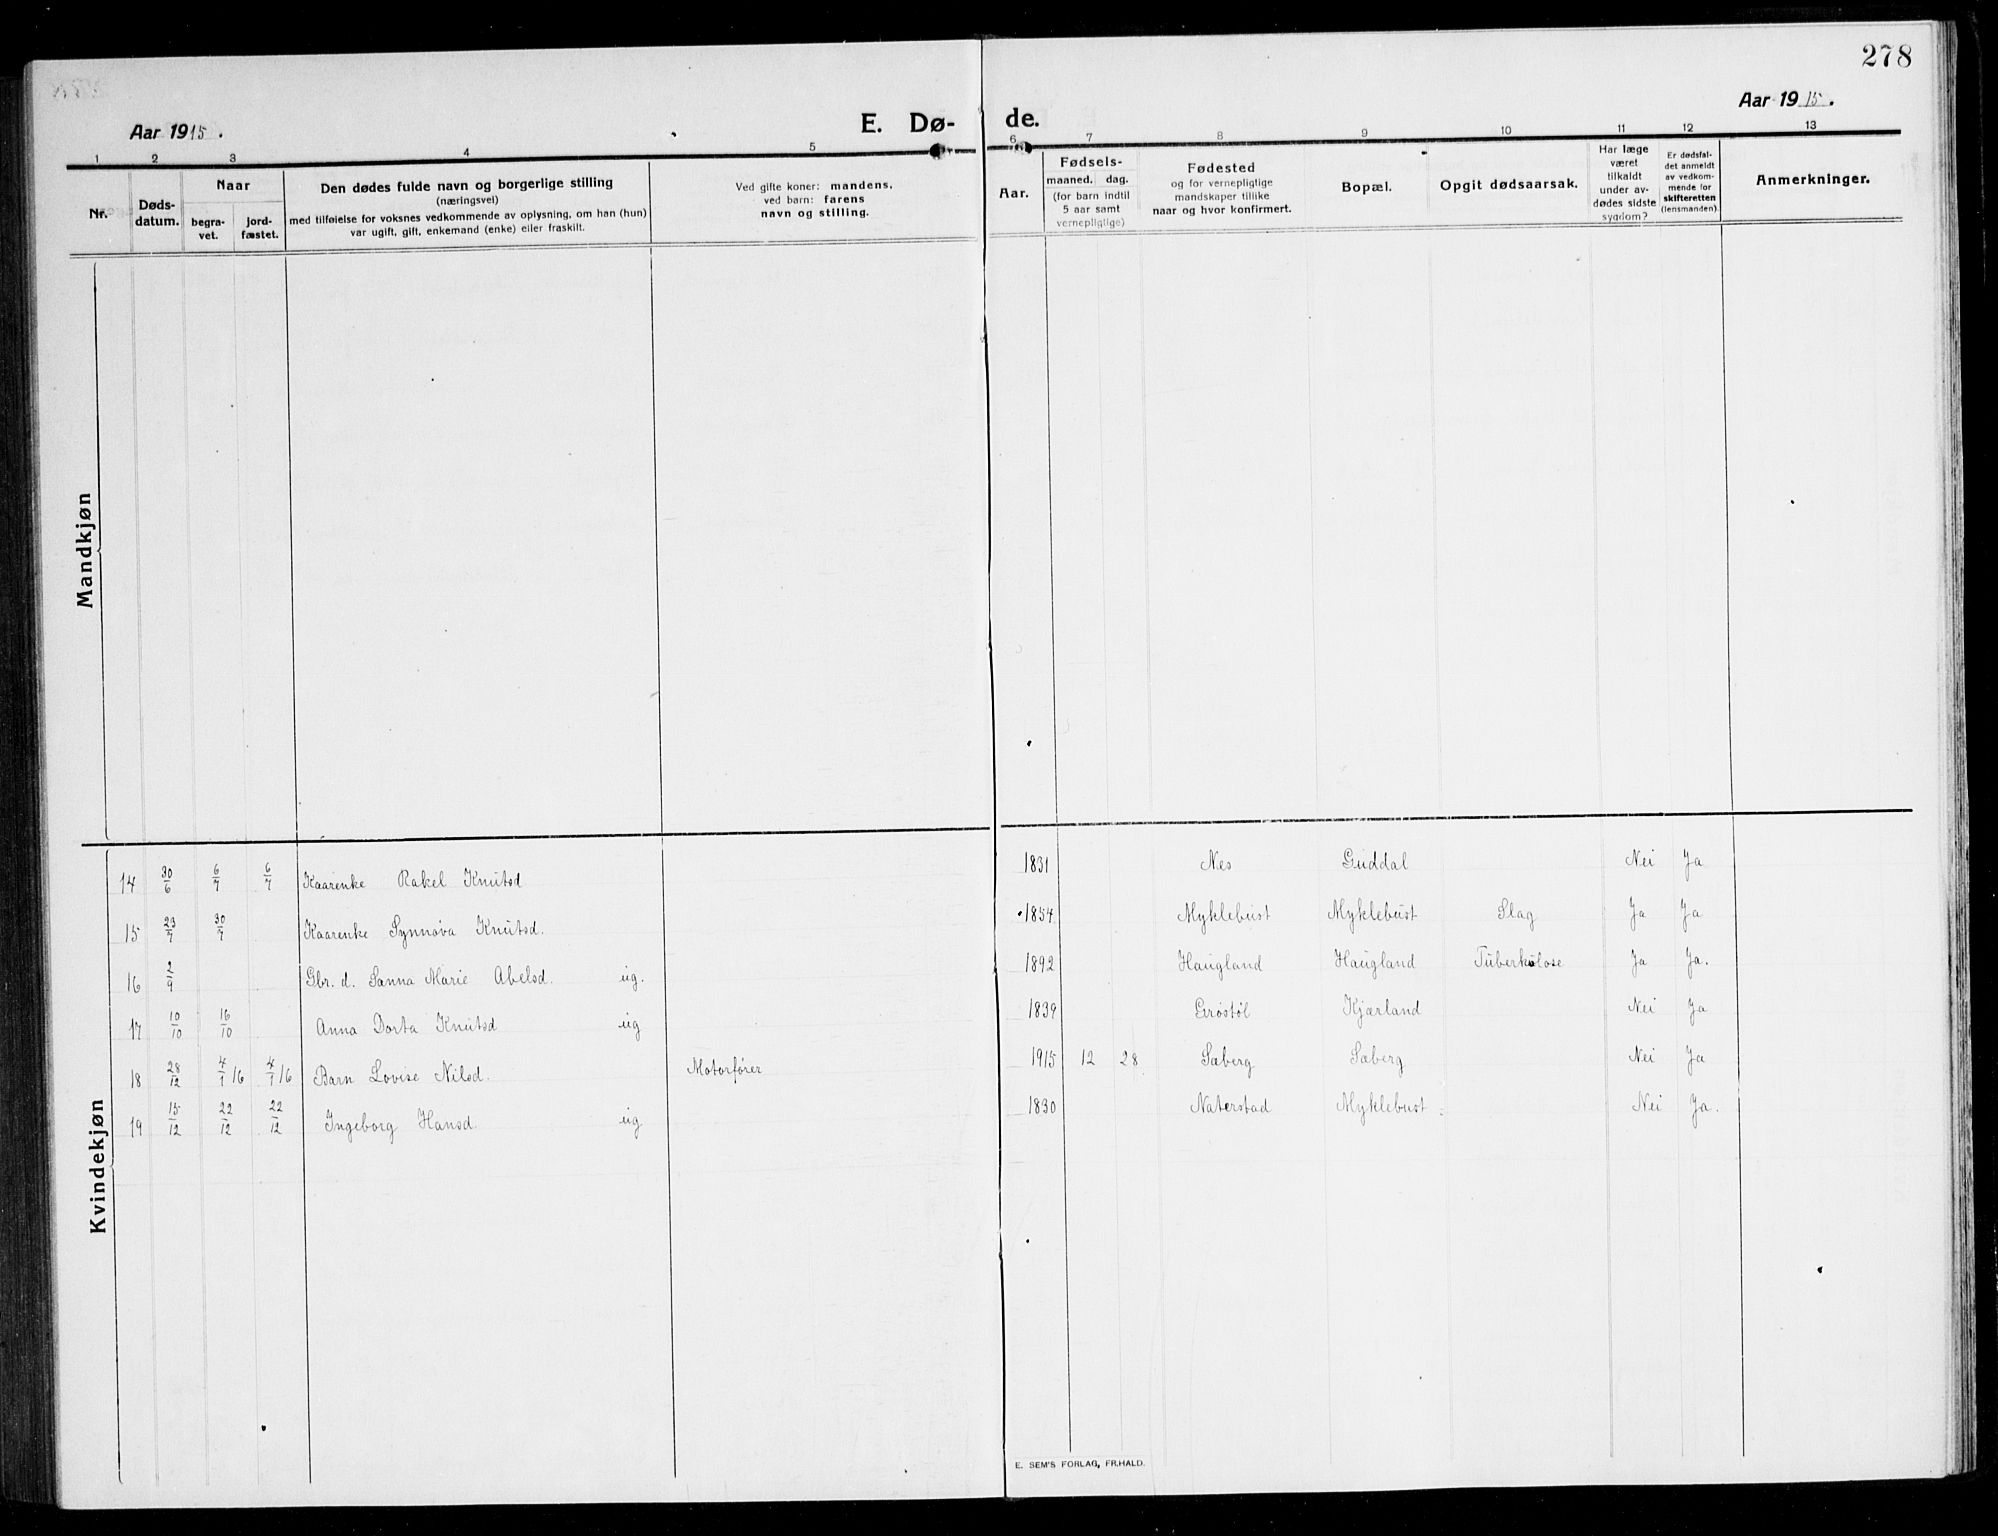 278
Aar 1915. E. Dø- de. Aar 1915.
1 2 3 4 5 6 7 8 9 10 11 12 13
Nr.
Døds-
datum.
Naar
begra-
vet.
jord-
fæstet.
Den dødes fulde navn og borgerlige stilling
(næringsvei)
med tilføielse for voksnes vedkommende av oplysning, om han (hun)
var ugift, gift, enkemand (enke) eller fraskilt.
Ved gifte koner: mandens,
ved barn: farens
navn og stilling.
Aar.
Fødsels-
maaned. dag.
(for barn indtil
5 aar samt
vernepligtige)
Fødested
og for vernepligtige
mandskaper tillike
naar og hvor konfirmert.
Bopæl.
Opgit dødsaarsak.
Har læge
været
tilkaldt
under av-
dødes sidste
sygdom?
Er dødsfal-
det anmeldt
av vedkom-
mende for
skifteretten
(lensmanden).
Anmerkninger.
Mandkjøn
Kvindekjøn
14 30/6 6/7 6/7 Kaarenke Rakel Knutsd 1831 Nes Guddal Nei Ja
15 23/7 30/7 Kaarenke Synnøva Knutsd. 1854 Myklebust Myklebust Slag Ja Ja
16 2/9 Gbr. d. Sanna Marie Abelsd. ug. 1892 Haugland Haugland Tuberkulose Ja Ja.
17 10/10 16/10 Anna Dorta Knutsd ug 1839 Grøstøl Kjærland Nei Ja
18 28/12 4/1 16 4/1 16 Barn Lovise Nilsd. Motorfører 1915 12 28 Sæberg Sæberg Nei Ja
19 15/12 22/12 22/12 Ingeborg Hansd. ug 1830 Naterstad Myklebust Nei Ja.
E. SEM'S FORLAG, FR.HALD.